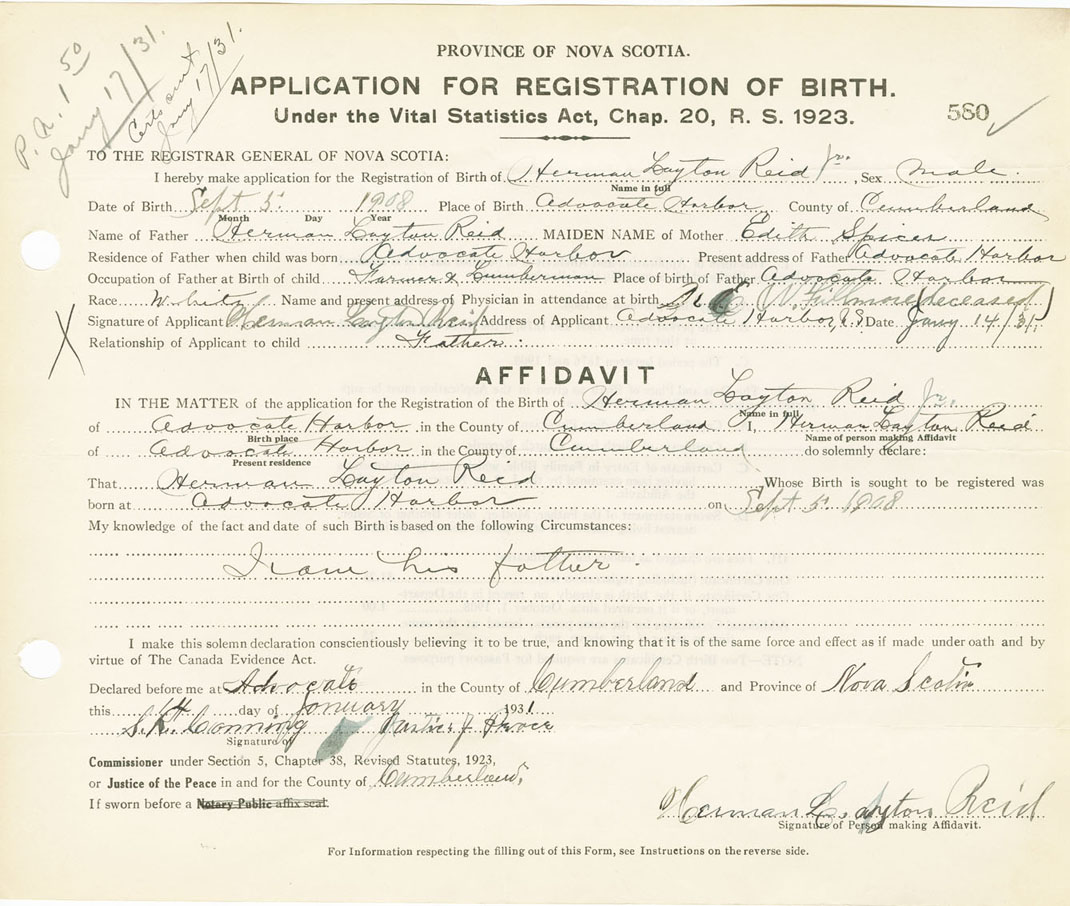 P. A. 1 50
Jany 17/31.
Certs out
Jany 17/31.
PROVINCE OF NOVA SCOTIA.
APPLICATION FOR REGISTRATION OF BIRTH.
Under the Vital Statistics Act, Chap. 20, R. S. 1923.
580
TO THE REGISTRAR GENERAL OF NOVA SCOTIA:
I hereby make application for the Registration of Birth of Herman Layton Reid Jr., Sex Male.
Name in full
Date of Birth Sept 5. 1908 Place of Birth Advocate Harbor County of Cumberland
Month Day Year
Name of Father Herman Layton Reid MAIDEN NAME of Mother Edith Spicer
Residence of Father when child was born Advocate Harbor Present address of Father Advocate Harbor
Occupation of Father at Birth of child Farmer & Lumberman Place of birth of Father Advocate Harbor
Race White Name and present address of Physician in attendance at birth Fillmore (deceased)
Signature of Applicant Herman Layton Reid Address of Applicant Advocate Harbor, N.S. Date Jany 14/31
Relationship of Applicant to child Father.
AFFIDAVIT
IN THE MATTER of the application for the Registration of the Birth of Herman Layton Reid Jr.
Name in full
of Advocate Harbor in the County of Cumberland I, Herman Layton Reid
Birth place Name of person making Affidavit
of Advocate Harbor in the County of Cumberland do solemnly declare:
Present residence
That Herman Layton Reid Whose Birth is sought to be registered was
born at Advocate Harbor on Sept 5. 1908
My knowledge of the fact and date of such Birth is based on the following Circumstances:
I am his father.
I make this solemn declaration conscientiously believing it to be true, and knowing that it is of the same force and effect as if made under oath and by
virtue of The Canada Evidence Act.
Declared before me at Advocate in the County of Cumberland and Province of Nova Scotia
this 14 day of January 1931
S. R. Conning Justice of Peace
Signature of
Commissioner under Section 5, Chapter 38, Revised Statutes, 1923,
or Justice of the Peace in and for the County of Cumberland,
If sworn before a Notary Public affix seal.
Herman Layton Reid
Signature of Person making Affidavit.
For Information respecting the filling out of this Form, see Instructions on the reverse side.